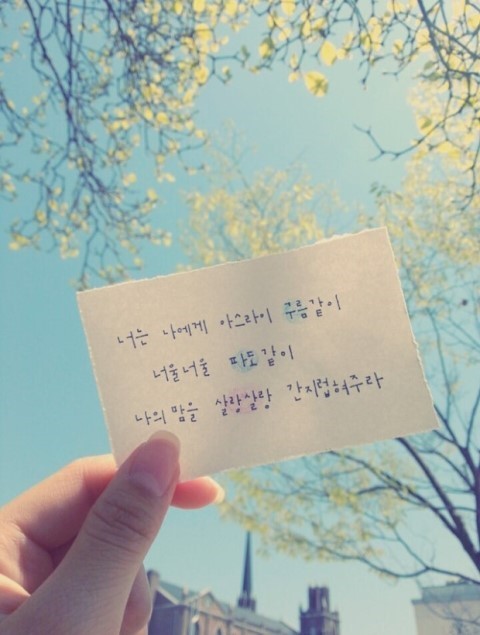 너는 나에게 아스라이 구름같이
너울너울 파도같이
나의 맘을 살랑살랑 간지럽혀주라